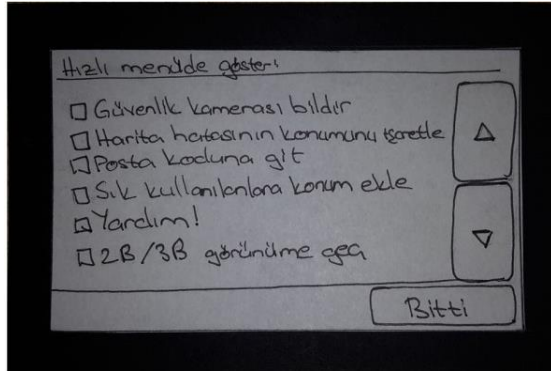 Hızlı menüde göster:
Güvenlik kamerası bildir
Harita hatasının konumunu işaretle
Posta koduna git
Sık kullanılanlara konum ekle
Yardım!
2B/3B görünüme geç
Bitti